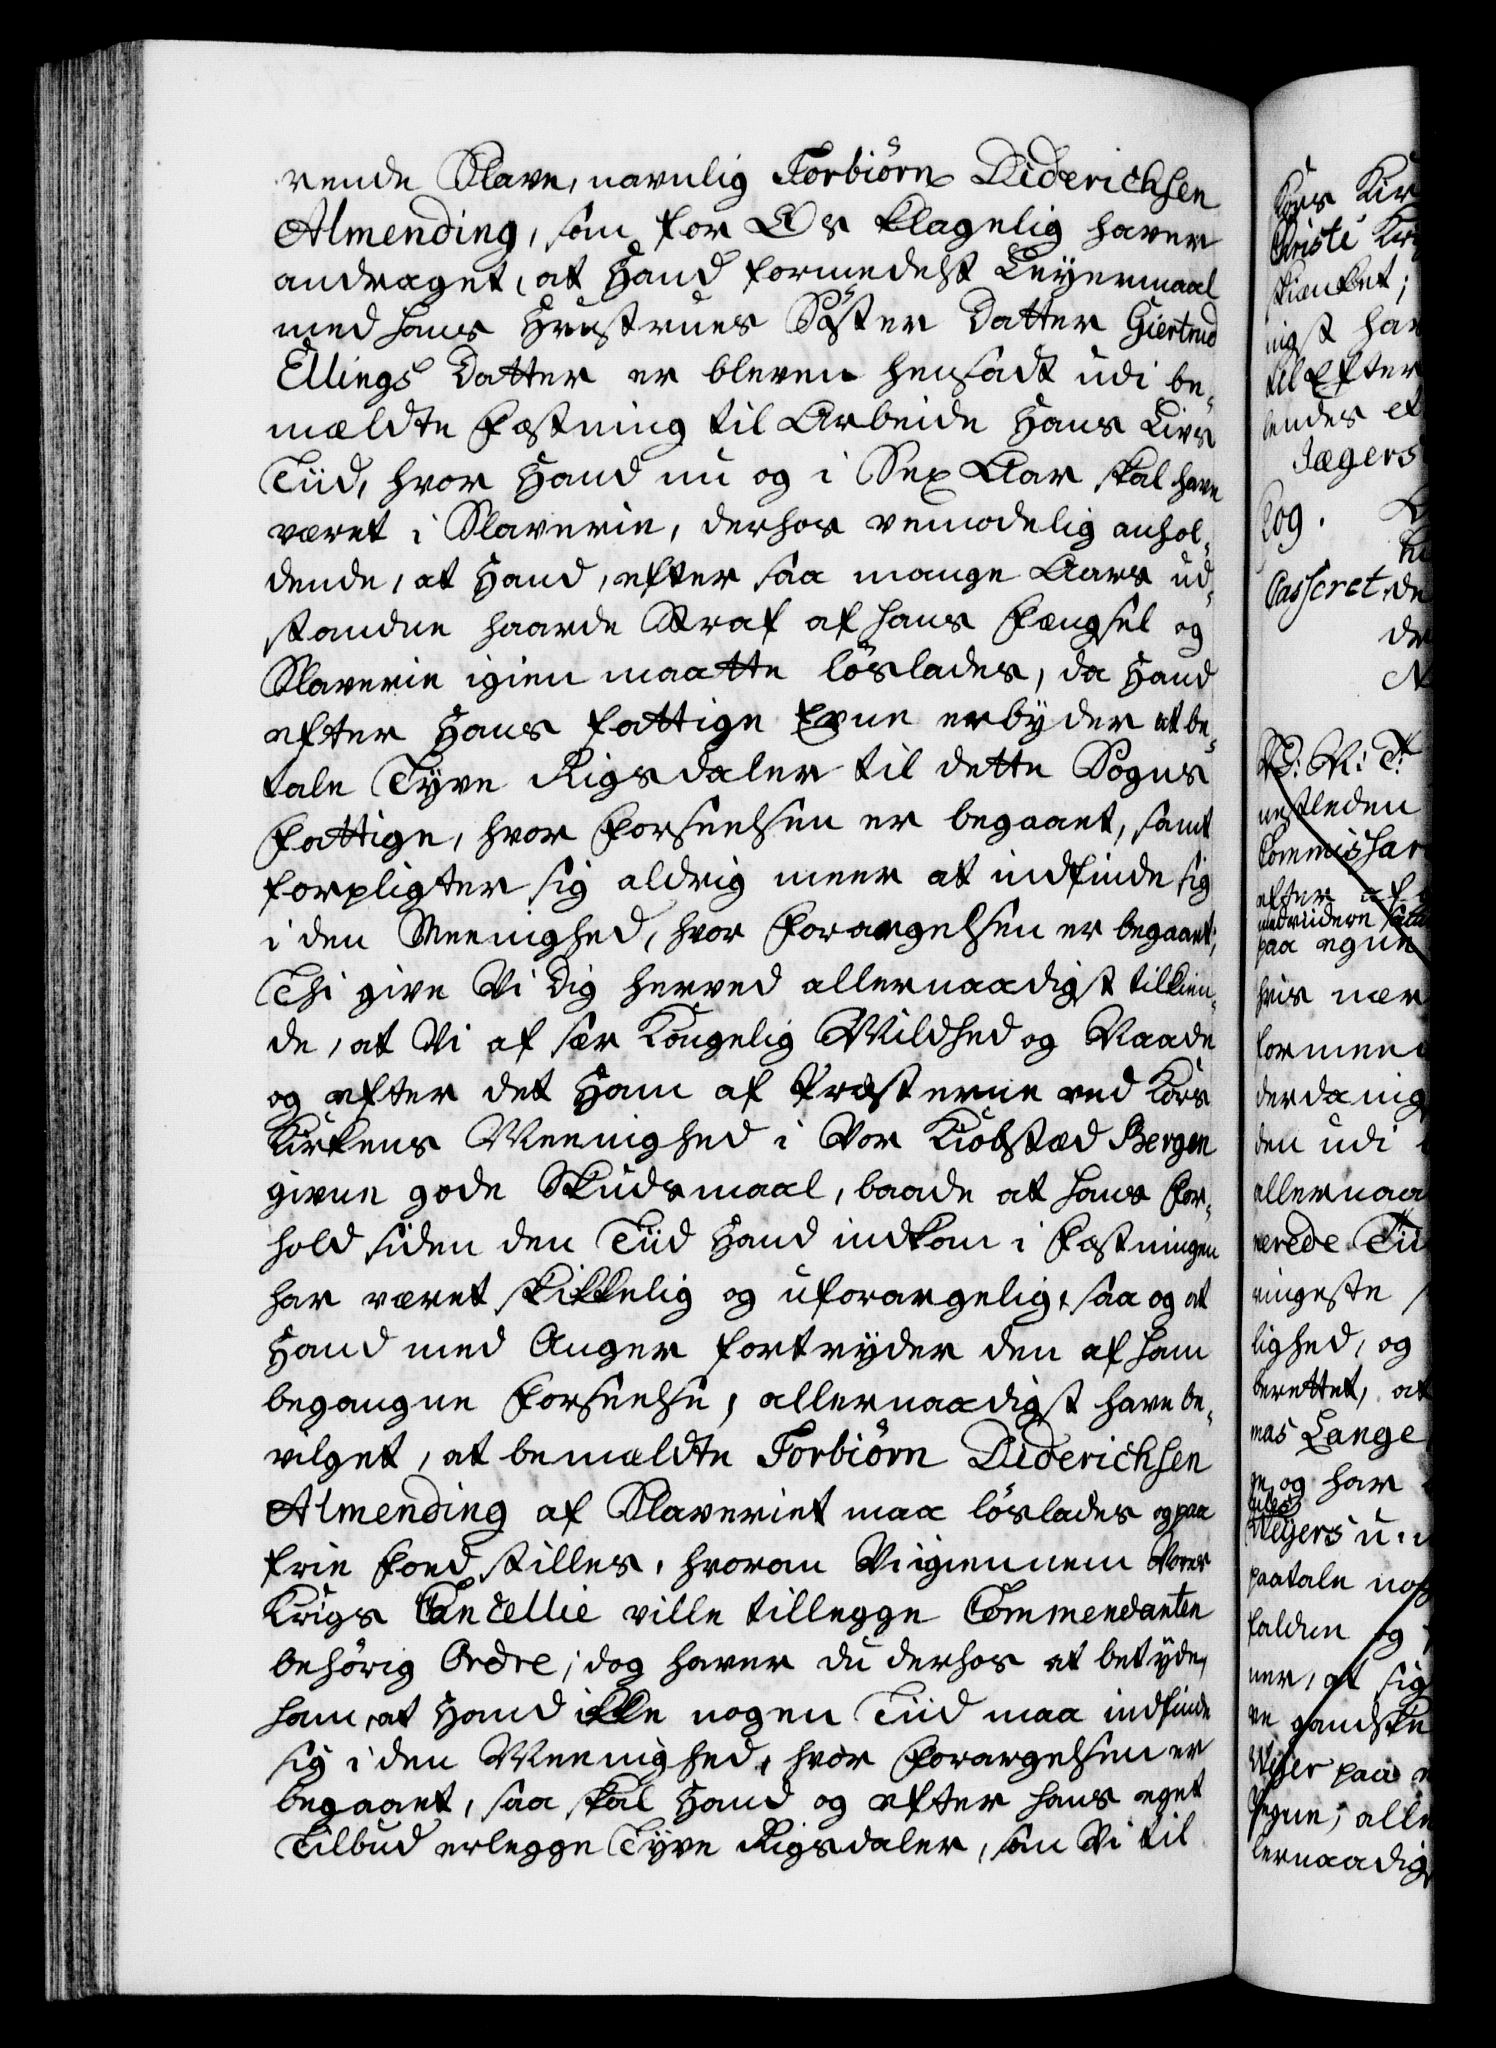 rende Slave, navnlig Torbiörn Diderichsen
Almending, som for Os klagelig haver
andraget, at Hand formedelst Leyermaal
med hans Hustrues Söster Datter Giertrud
Ellings Datter er bleven hensadt udi be-
mældte Fæstning til Arbeide Hans Livs
Tiid, hvor Hand nu og i Sex Aar skal have
været i Slaverie, derhos vemodelig anhol-
dende, at Hand, efter saa mange Aars ud-
standne haarde Straf af hans Fængsel og
Slaverie igien maatte löslades, da Hand
efter Hans fattige Evne erbyder at be-
tale Tyve Rigsdaler til dette Sogns
Fattige, hvor Forseelsen er begaaet, samt
forpligter sig aldrig meer at indfinde sig
i den Meenighed, hvor Forargelsen er begaaet;
Thi give Vi Dig herved allernaadigst tilkien-
de, at Vi af sær Kongelig Mildhed og Naade
og efter det Ham af Præsterne ved Kors
Kirkens Meenighed i Vor Kiöbstæd Bergen
givne gode Skudsmaal, baade at hans For-
hold siden den Tiid Hand indkom i Fæstningen
har været skikkelig og uforargelig, saa og at
Hand med Anger fortryder den af ham
begangne Forseelse, allernaadigst have be-
vilget, at bemældte Torbiörn Diderichsen
Almending af Slaveriet maa löslades og paa
frie Foed stilles, hvorom Vi igiennem Vores
Krigs Cancellie ville tillegge Commendanten
behörig Ordre; dog haver du derhos at betyde,
ham, at Hand ikke nogen Tiid maa indfinde
sig i den Meenighed, hvor Forargelsen er
begaaet, saa skal Hand og efter hans eget
Tilbud erlegge Tyve Rigsdaler, som Vi til
Kors Kir
Christi Kir
skiænket;
nigst har
til Efter
lendes et
Jægers
Log.
Casseret, de
de
N
nestleden
Commissar
efter af
paa egne
hvis nær
formeen
derdanig
den udi
allernaa
nerede Tii
ringeste
lighed, og
berettet, at
mas Lange
ne og har
Meyers u
paatale
falden og
ner, at sig
ve gandske
Meyer paa
Vegne, alle
lernaadig